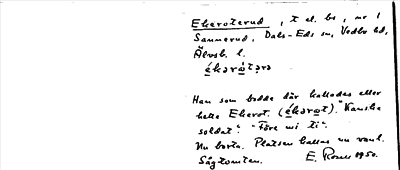 Ekeroterud, t el. bs, nr 1
Sannerud, Dals-Eds sn, Vedbo hd,
Älvsb. l.
ékəròt̯ərə
Han som bodde där kallades eller
hette Ekerot. (ékəròt). "Kanske
soldat". "Före mi ti".
Nu borta. Platsen kallas nu vanl.
Sågtomten. E. Rome 1950.